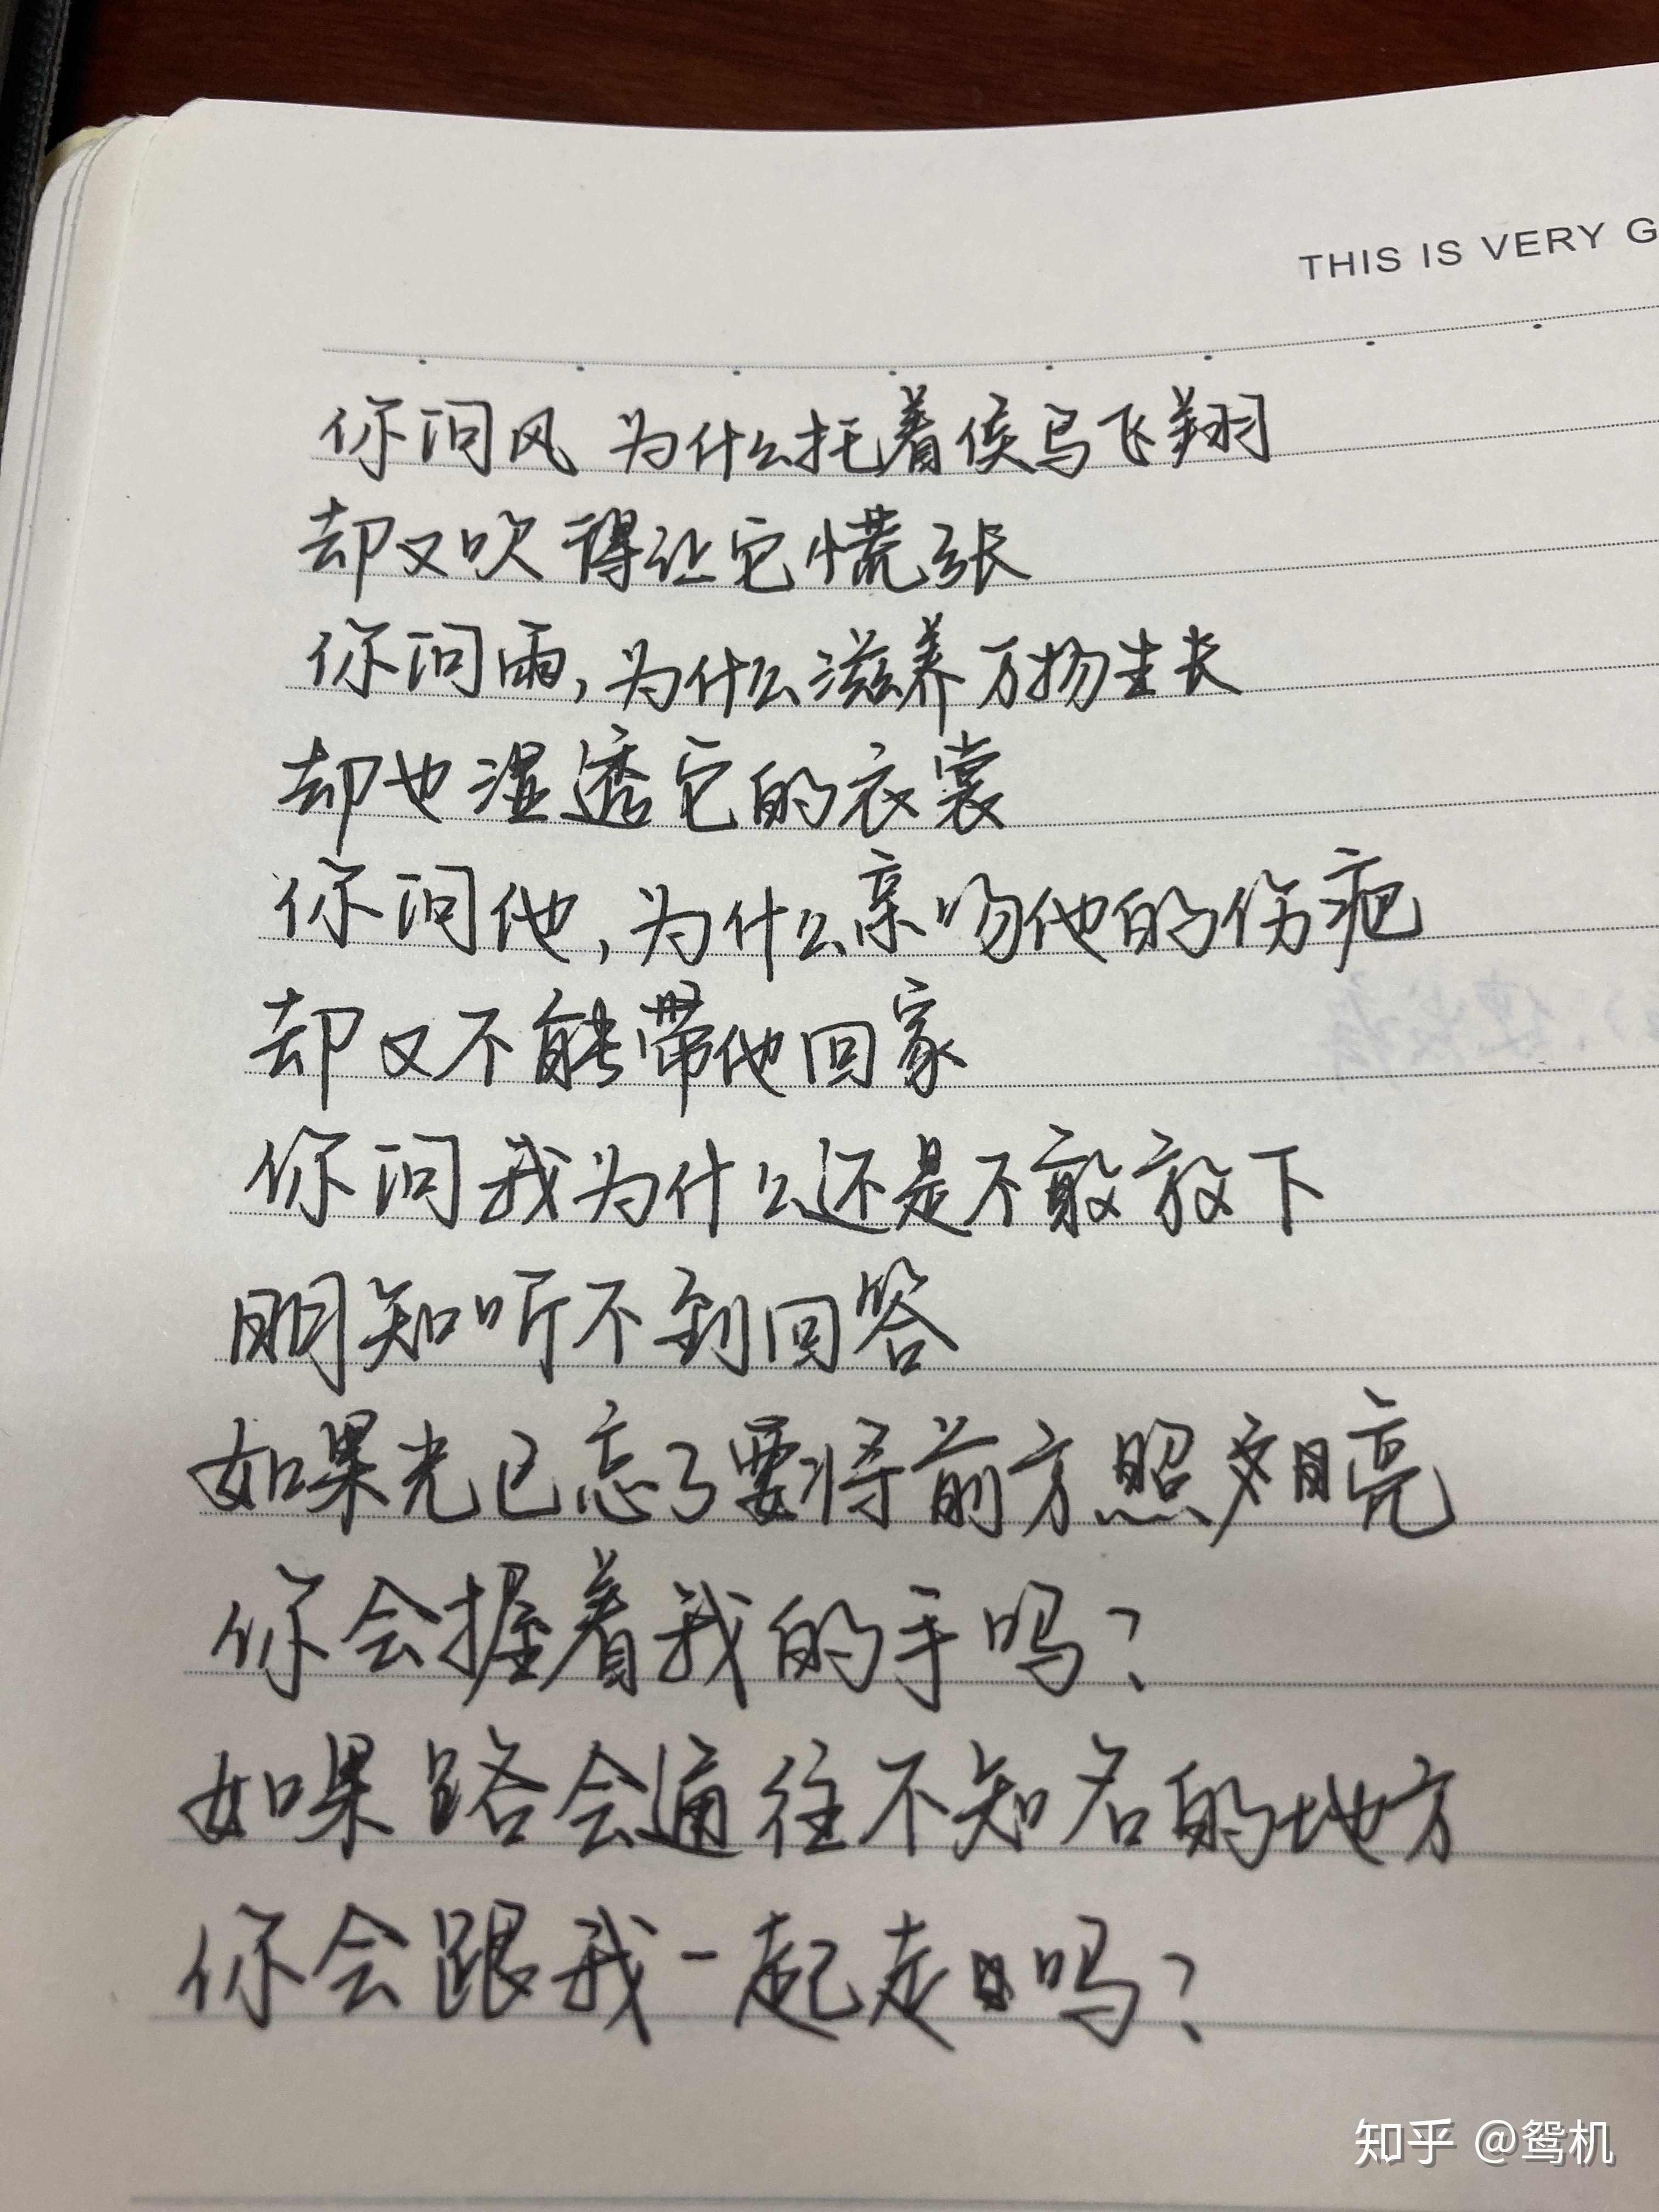 THIS IS VERY G
你问风 为什么托着候鸟飞翔
却又吹得让它慌张
你问雨,为什么滋养万物生长
却也湿透它的衣裳
你问他,为什么亲吻他的伤疤
却又不能带他回家
你问我为什么还是不敢放下
明知听不到回答
如果光已忘了要将前方照亮
你会握着我的手吗?
如果路会通往不知名的地方
你会跟我一起走吗?
知乎 @鸳机